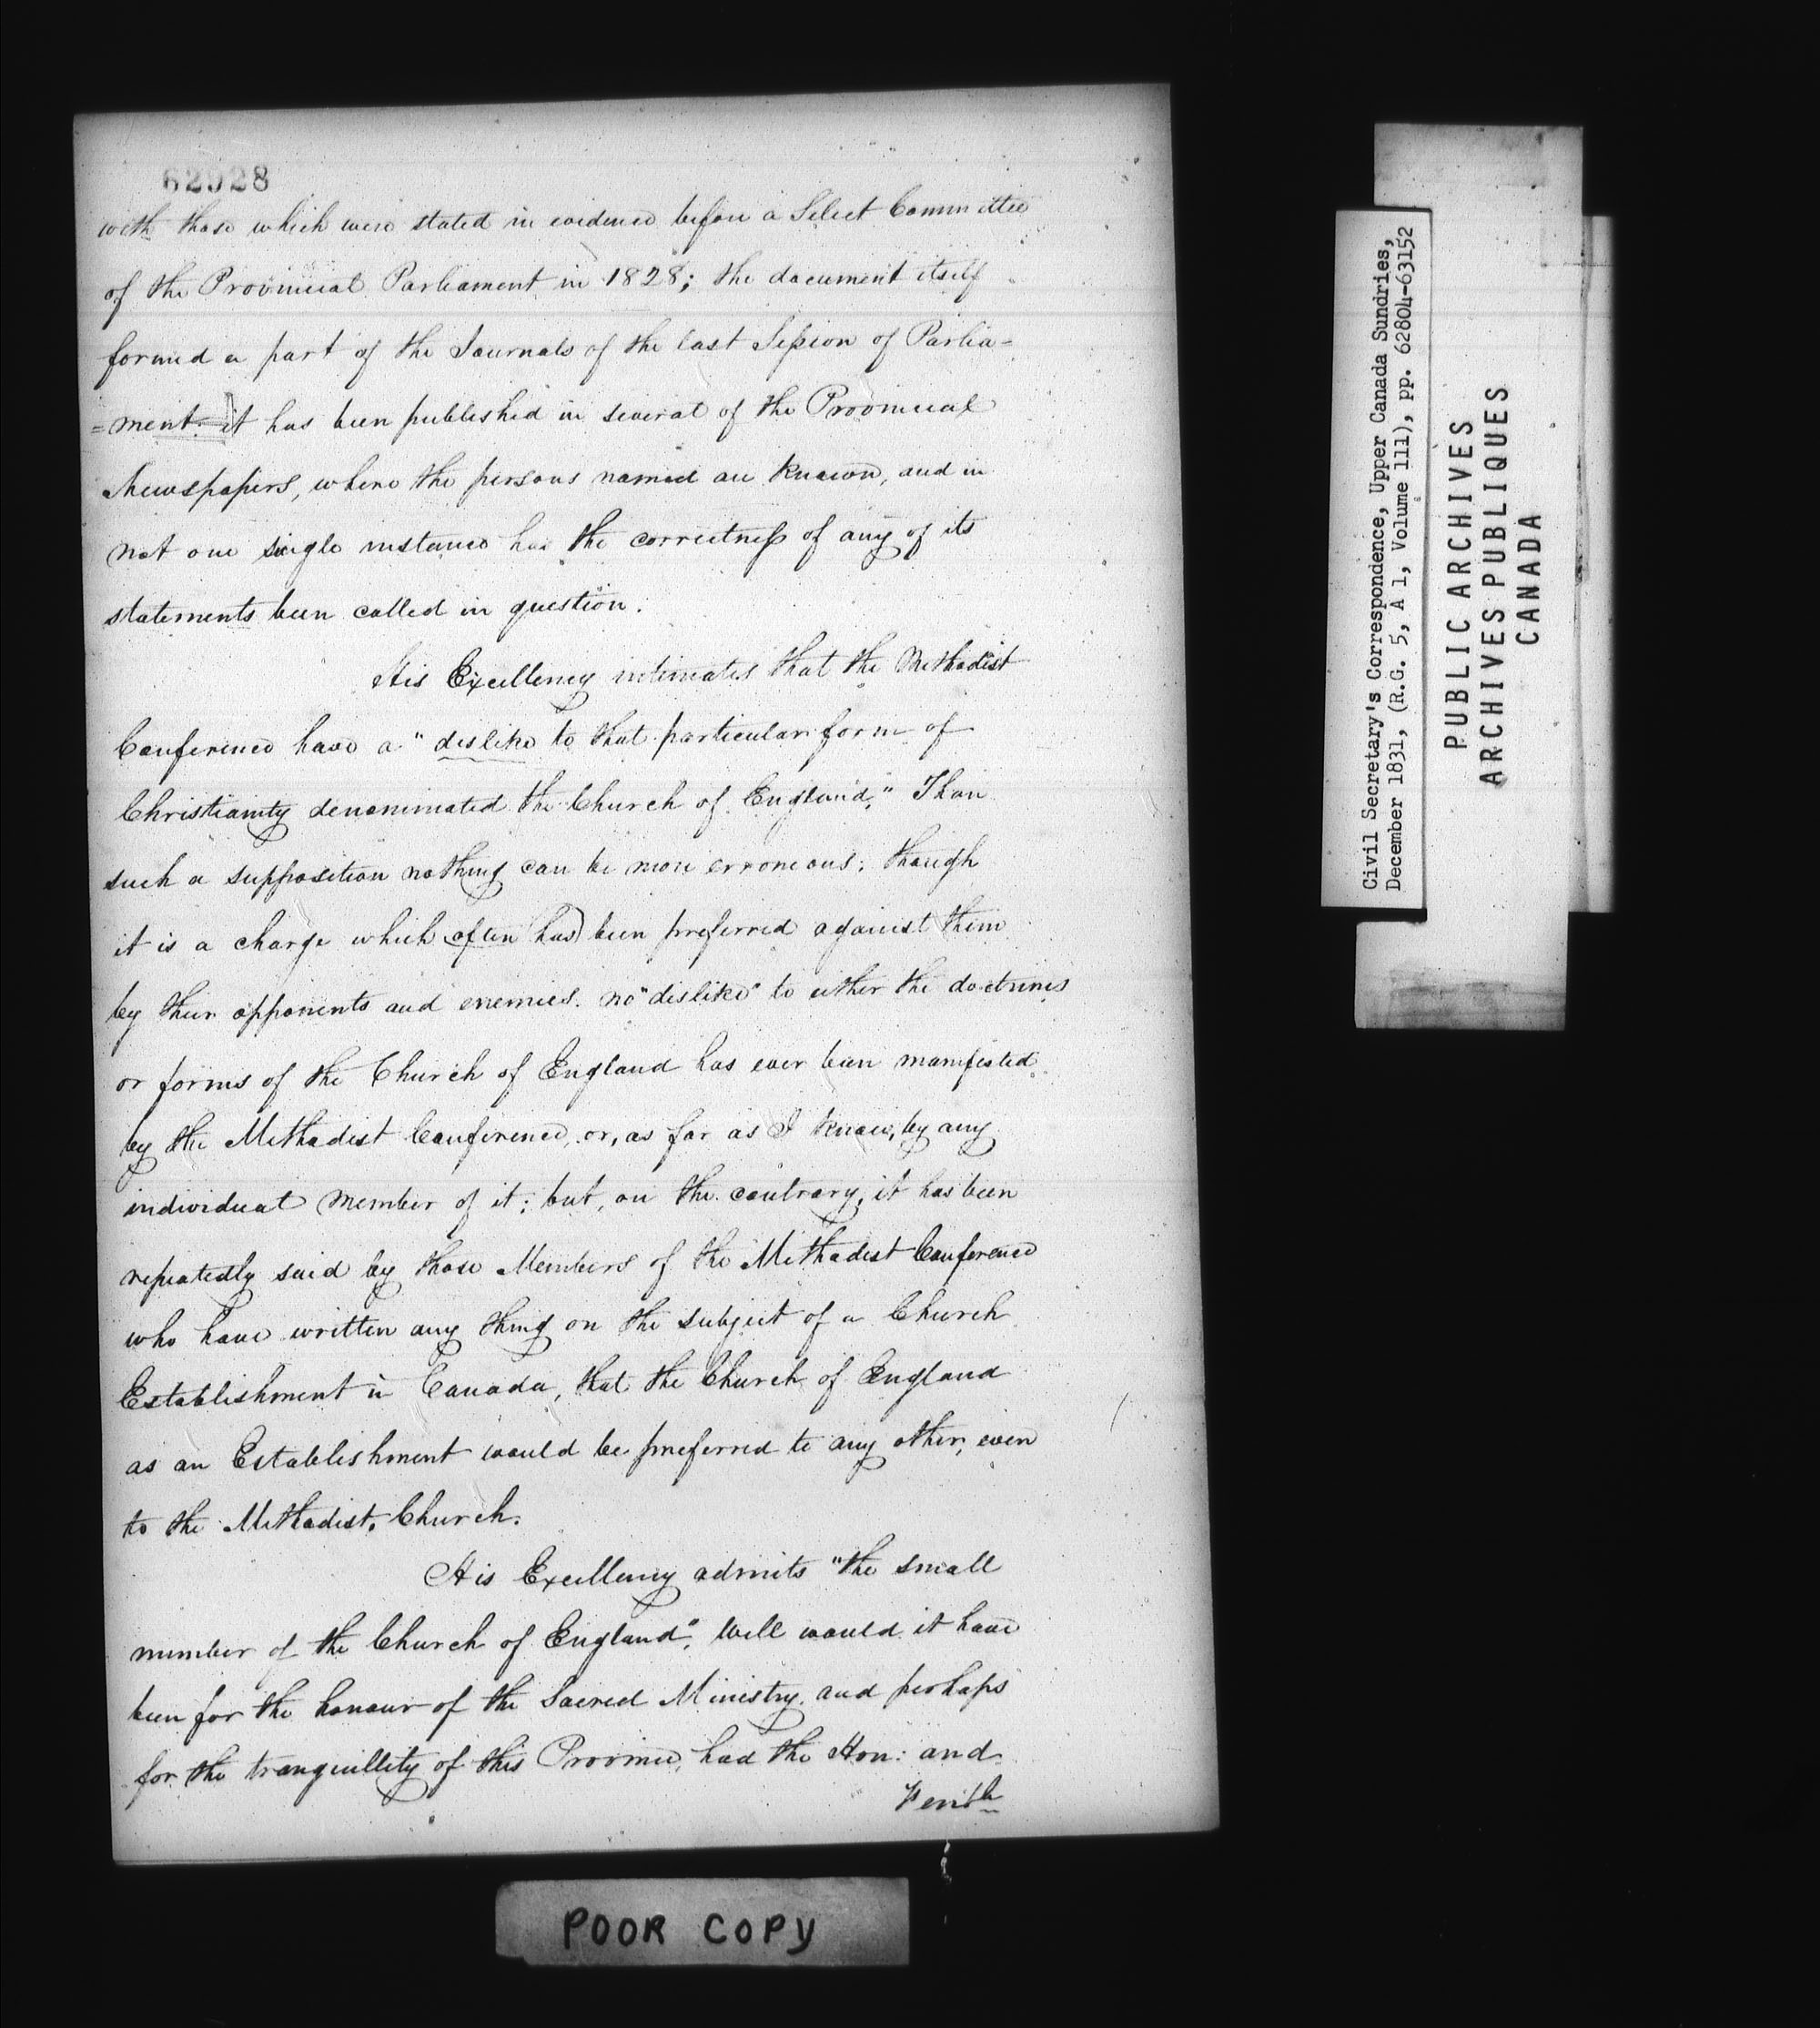 62928
with those which were stated in evidence before a Select Committee
of the Provincial Parliament in 1828; the document itself
formed a part of the Journals of the last Session of Parlia=
=ment. it has been published in several of the Provincial
Newspapers, where the persons named are known, and in
not one single instance has the correctness of any of its
statements been called in question.
His Excellency intimates that the Methodist
Conference have a "dislike to that particular form of
Christianity denominated the Church of England." Than
such a supposition nothing can be more erroneous; though
it is a charge which often has been preferred against them
by their opponents and enemies. no "dislike" to either the doctrines
or forms of the Church of England has ever been manifested
by the Methodist Conference, or, as far as I know, by any
individual member of it; but, on the contrary, it has been
repeatedly said by those Members of the Methodist Conference
who have written any thing on the subject of a Church
Establishment in Canada, that the Church of England
as an Establishment would be preferred to any other, even
to the Methodist Church.
His Excellency admits "the small
number of the Church of England". Well would it have
been for the honour of the Sacred Ministry, and perhaps
for the tranquillity of this Province, had the Hon: and
Venble
POOR COPY
Civil Secretary's Correspondence, Upper Canada Sundries,
December 1831, (R.G. 5, A 1, Volume 111), pp. 62804-63152
PUBLIC ARCHIVES
ARCHIVES PUBLIQUES
CANADA